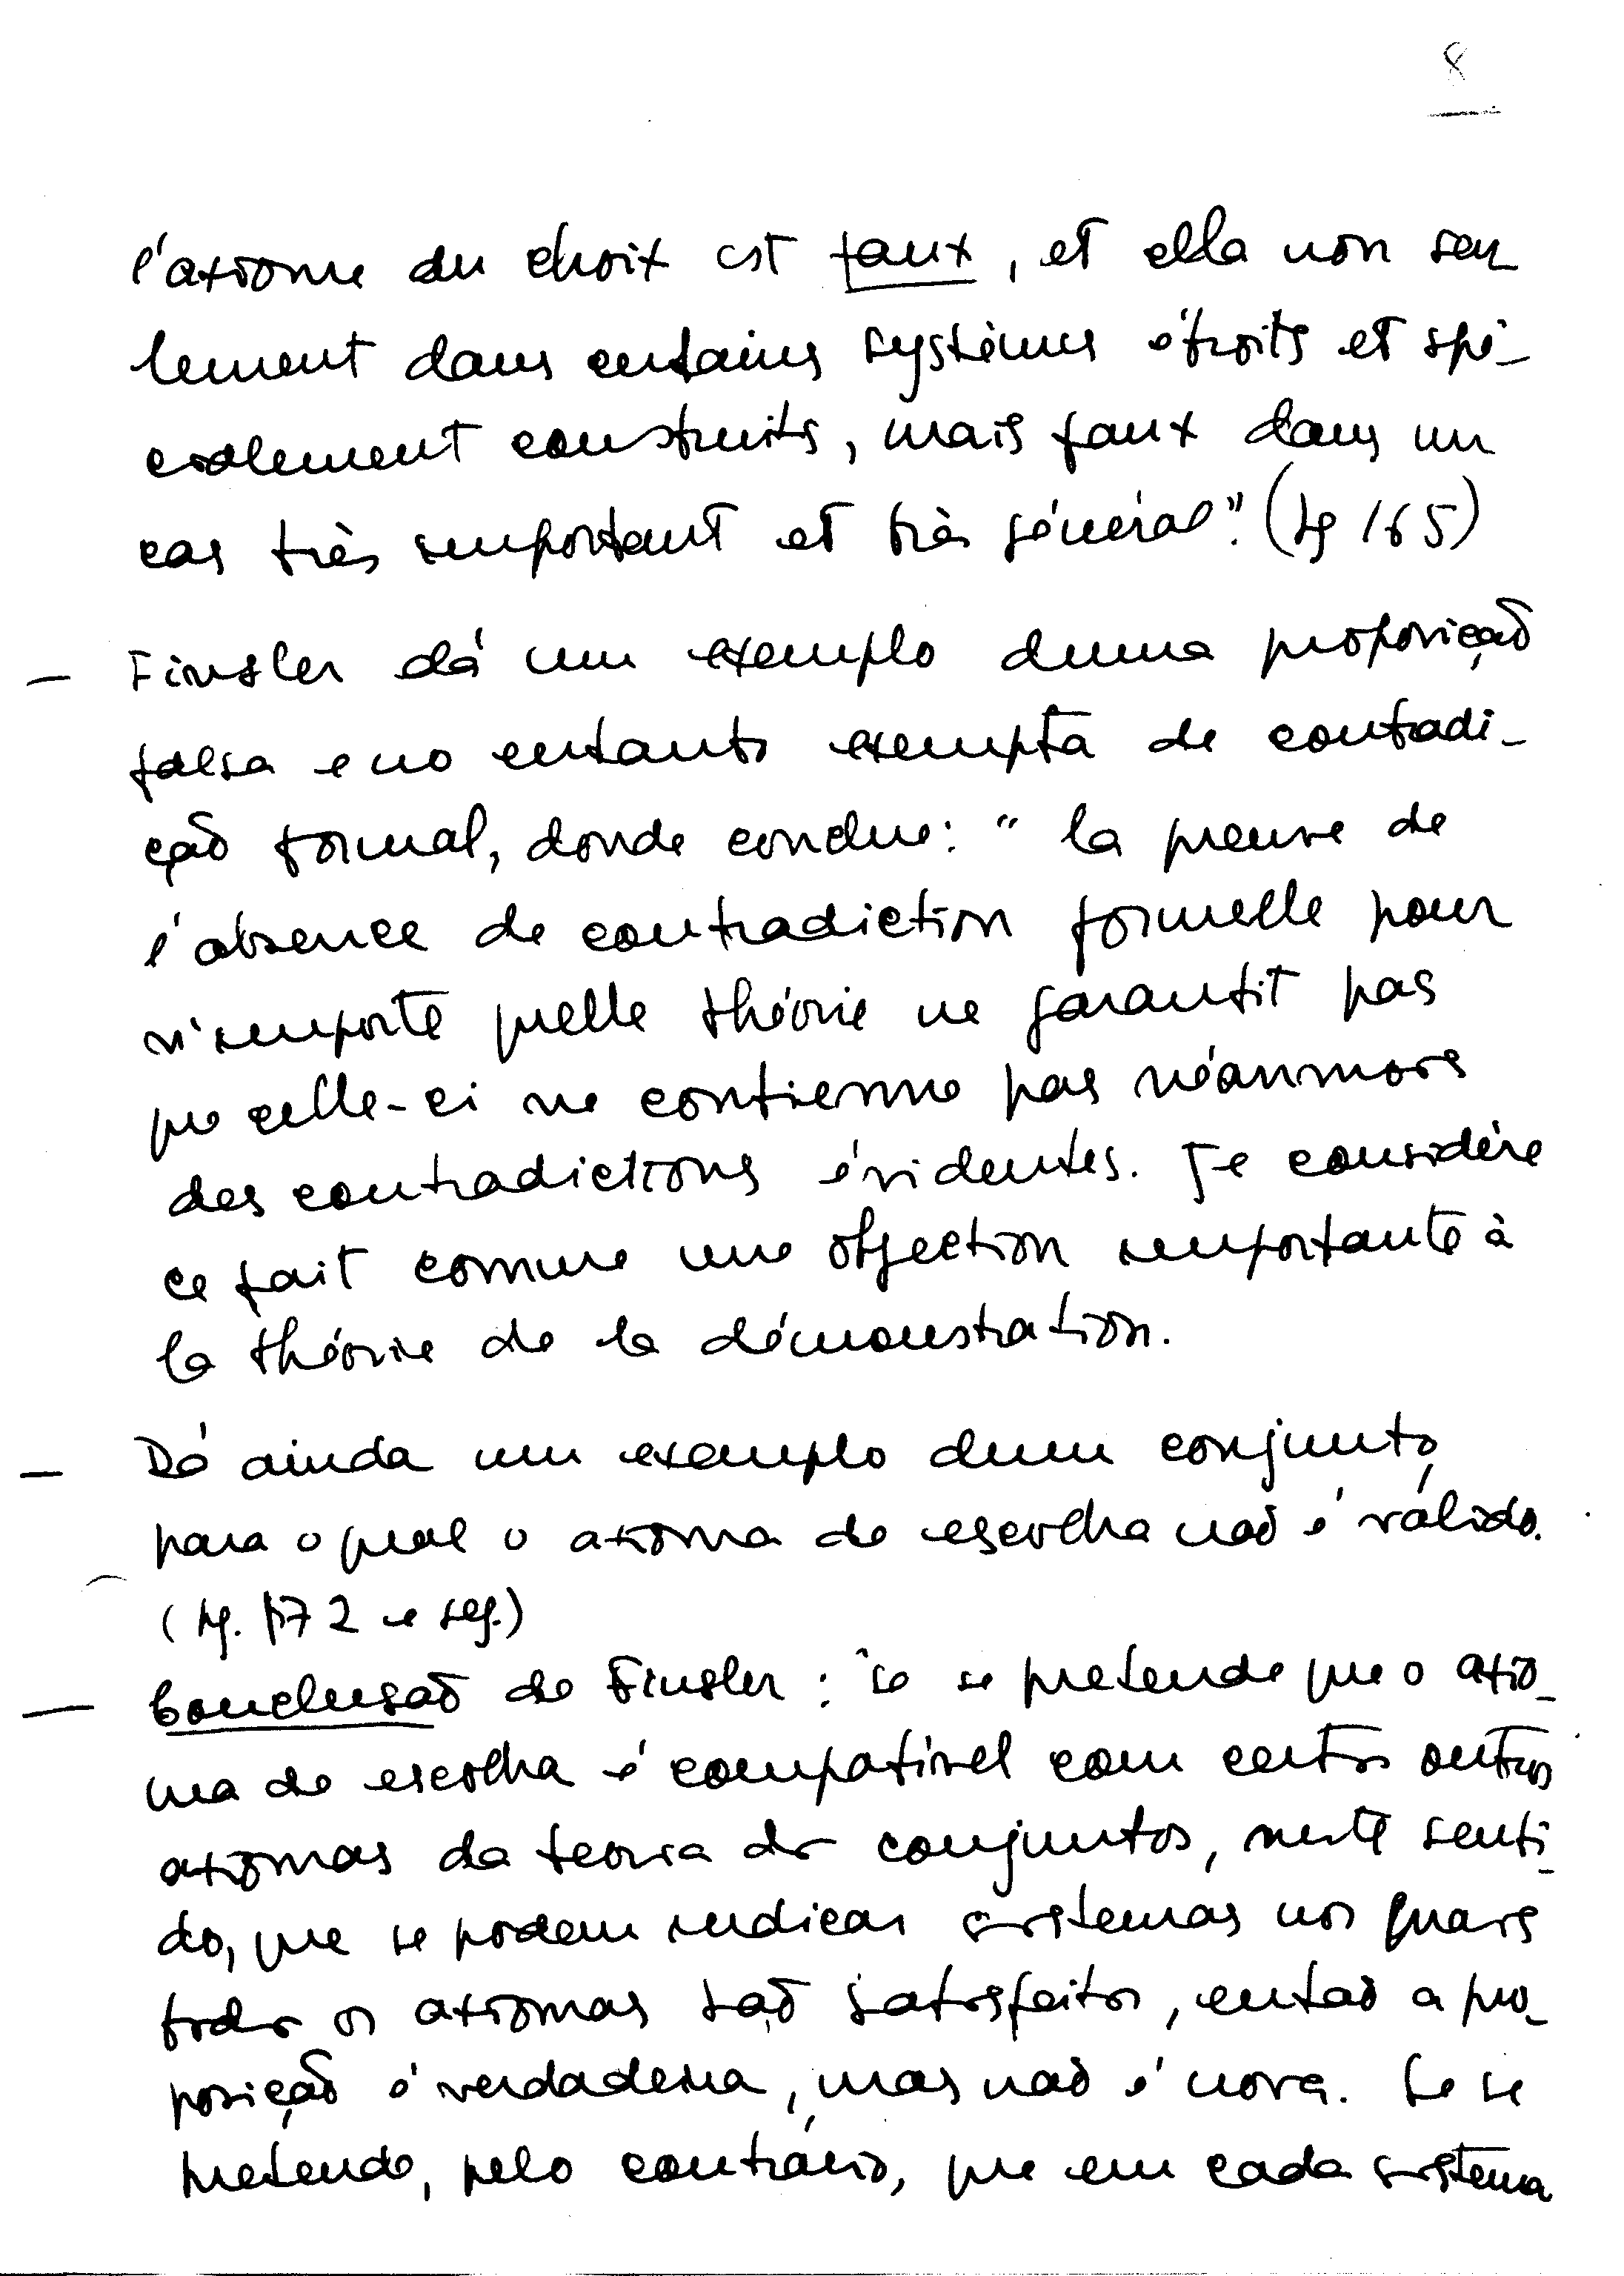 8
l'axiome du choix est faux, et cela non seu
lement dans certains systèmes étroits et spé-
cialement construits, mais faux dans un
cas très important et très général". (pg 165)
— Finsler dá um exemplo duma proposição
falsa e no entanto exempta de contradi-
ção formal, donde conclue: " la preuve de
l'absence de contradiction formelle pour
n'importe quelle théorie ne garantit pas
que celle-ci ne contienne pas néanmois
des contradictions évidentes. Je considère
ce fait comme une objection importante à
la théorie de la démonstration.
— Dá ainda um exemplo dum conjunto,
para o qual o axioma de escolha não é válido.
(pg. 172 e seg.)
— Conclusão de Finsler : "se se pretende que o axio-
ma de escolha é compatível com certos outros
axiomas da teoria dos conjuntos, neste senti-
do, que se podem indicar sistemas nos quais
todos os axiomas são satisfeitos, então a pro-
posição é verdadeira, mas não é nova. Se se
pretende, pelo contrário, que em cada sistema